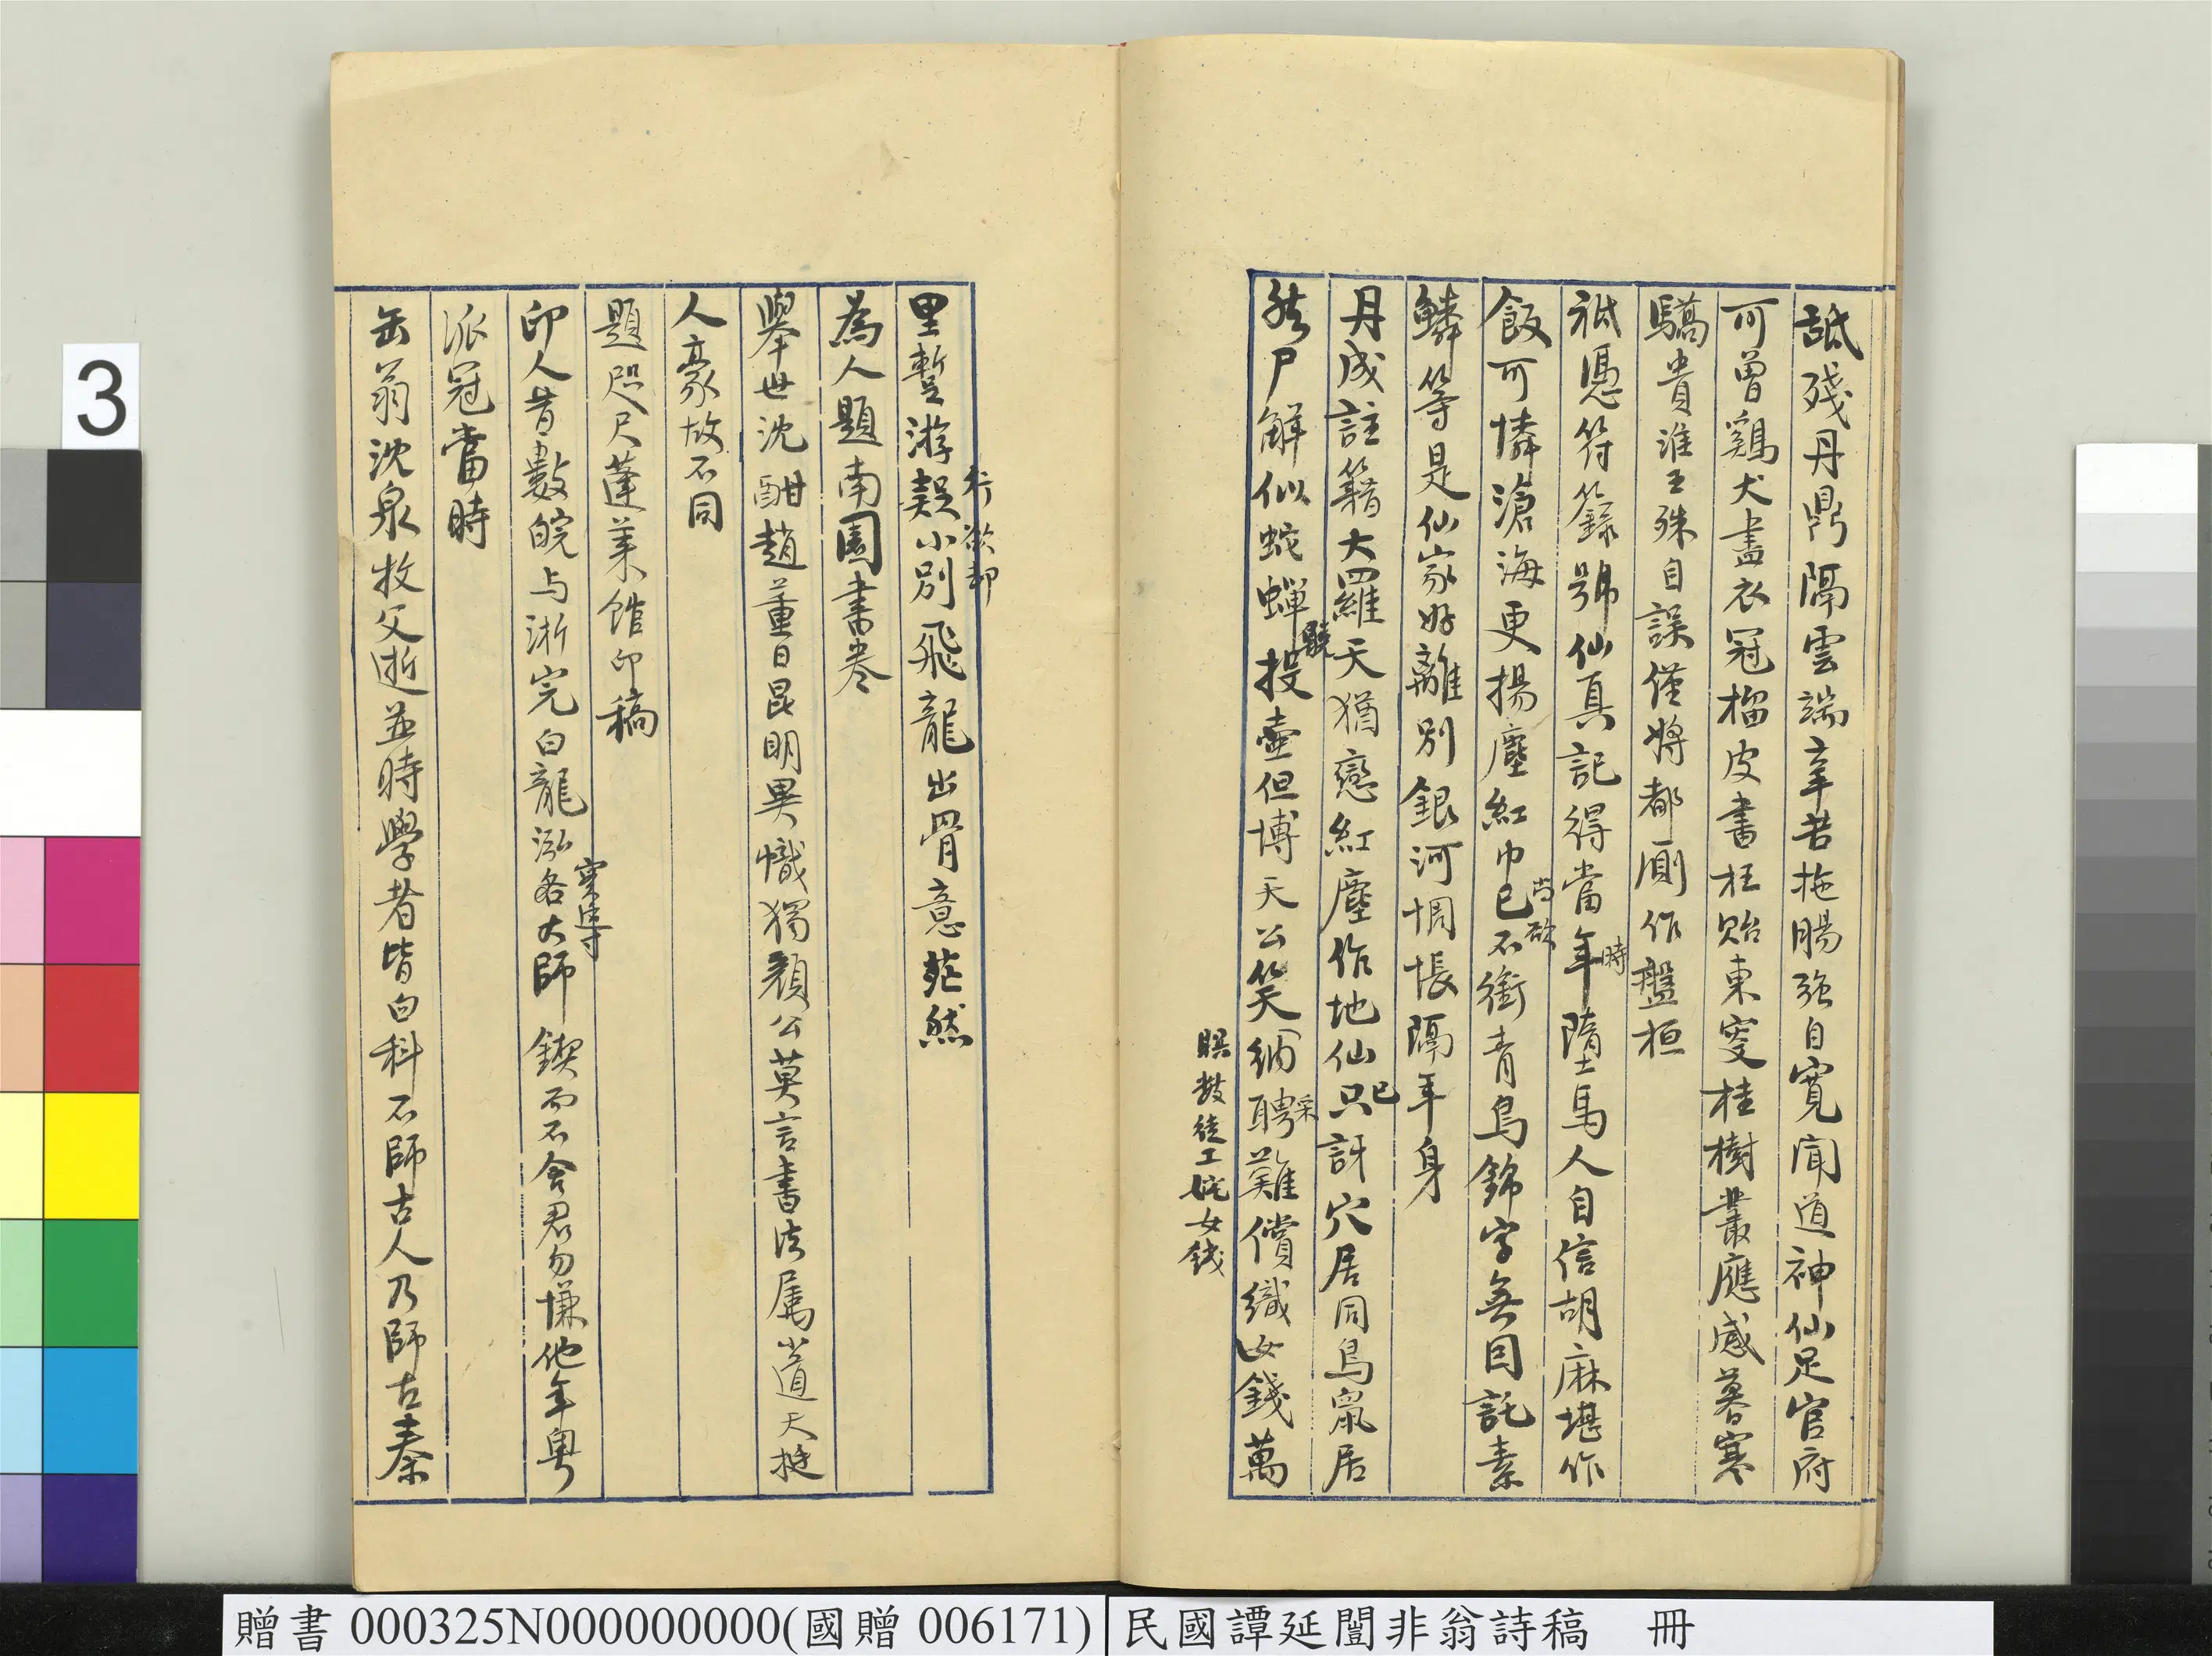 舐殘丹鼎隔雲端辛苦拖腸强自寬聞道神仙足官府
可曾鷄犬盡衣冠榴皮書枉貽東叟桂樹叢應感暮寒
驕貴淮王殊自誤僅將都厠作盤桓
祗憑符籙號仙真記得當年墮馬人自信胡麻堪作
時
飯可憐滄海更揚塵紅巾已不銜青鳥錦字無因託素
尚
鱗等是仙家好離別銀河惆悵隔年身
丹成註籍大羅天猶戀紅塵作地仙只訝穴居同鳥鼠居
已
然尸解似蛇蟬投壺但博天公笑納聘難償織女錢萬
采
瞑數徒工姹女錢
里暫游誤小別飛龍出骨意茫然
行欲却
為人題南園書卷
舉世沈酣趙董日昆明異幟獨顏公莫言書法属當道天挺
人豪故不同
題咫尺蓬萊館印稿
印人昔數皖与浙完白龍泓各大師鍥而不舍君勿慊他年粤
實導
派冠當時
缶翁沈泉牧父逝並時學者皆白科不師古人乃師古秦